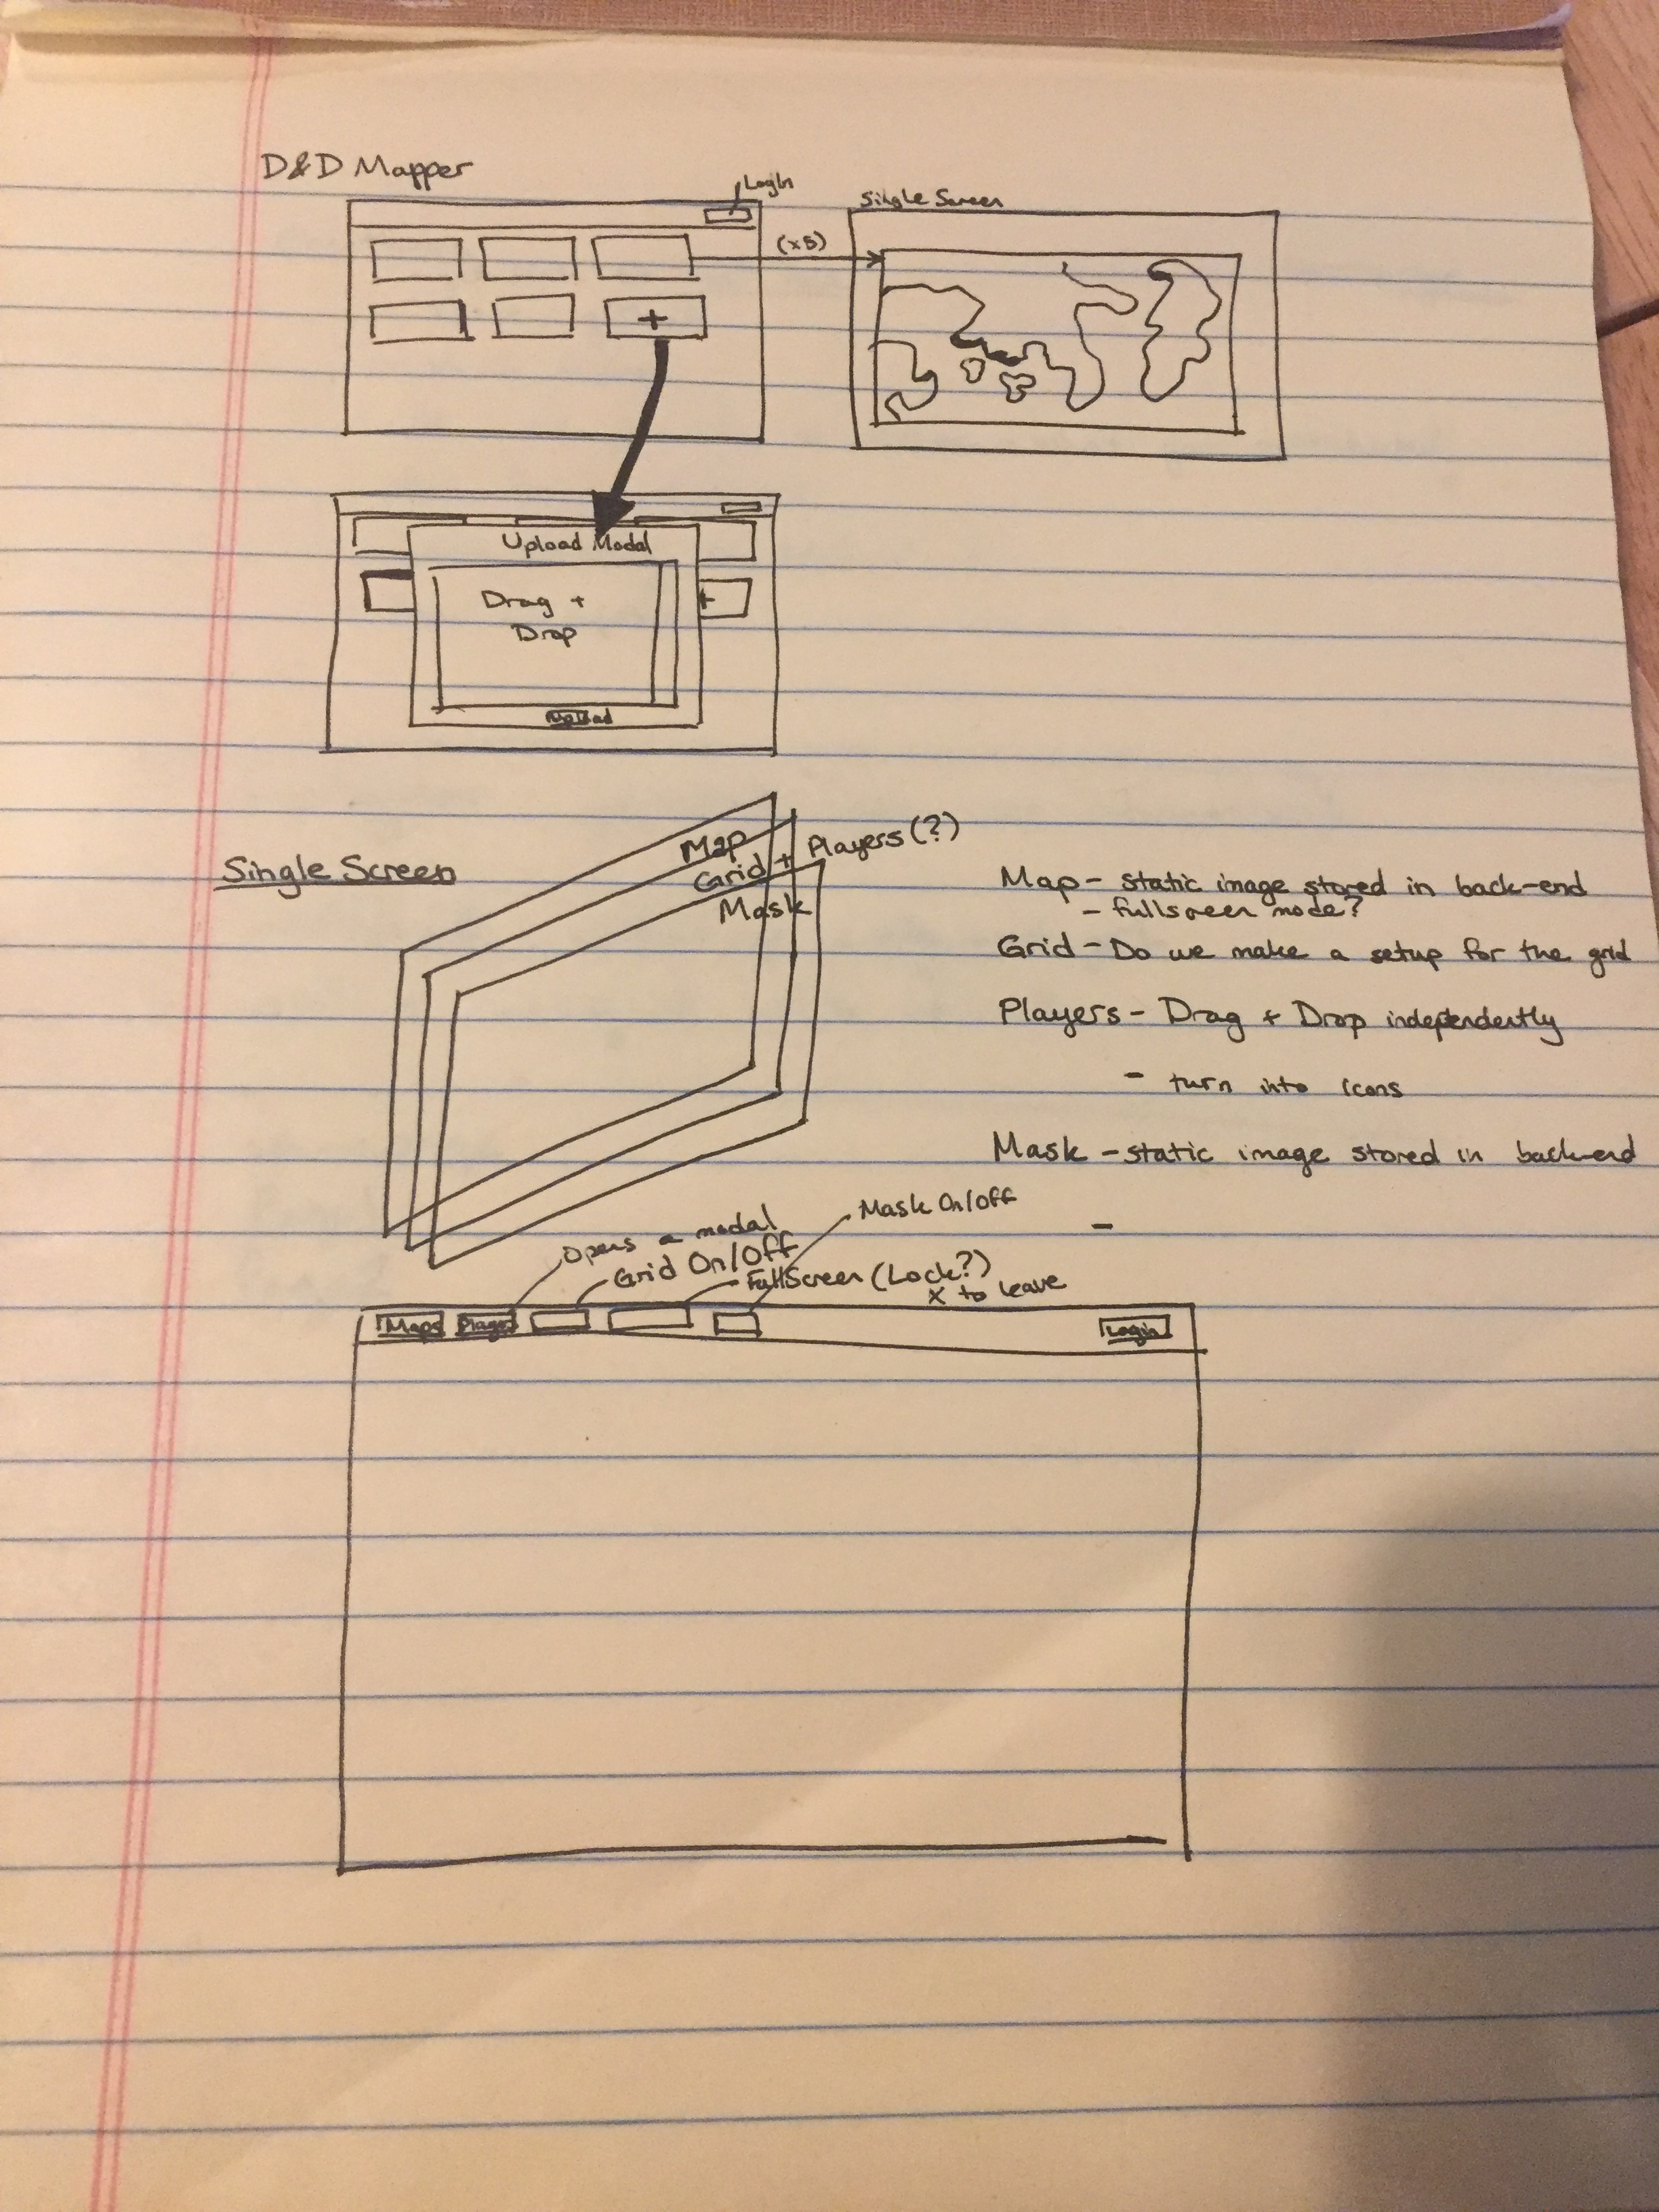 D&D Mapper
LogIn
Single Screen
(x5)
+
Upload Modal
Drag +
Drop
+
Upload
Single Screen
Map
Grid + Players (?)
Mask
Map - static image stored in back-end
- fullscreen mode?
Grid - Do we make a setup for the grid
Players - Drag + Drop independently
- turn into icons
Mask - static image stored in back-end
-
Mask On/Off
Opens a modal
Grid On/Off
FullScreen (Lock?)
X to leave
Maps
Login